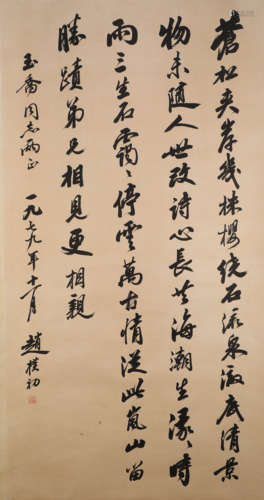 蒼松夾岸幾株櫻繞石流泉澈底清景
物未随人世改詩心長共海潮生濛〻時
雨三生石靄〻停雲萬古情從此嵐山留
勝蹟弟兄相見更相親
玉喬同志兩正
一九七九年十一月 趙樸初